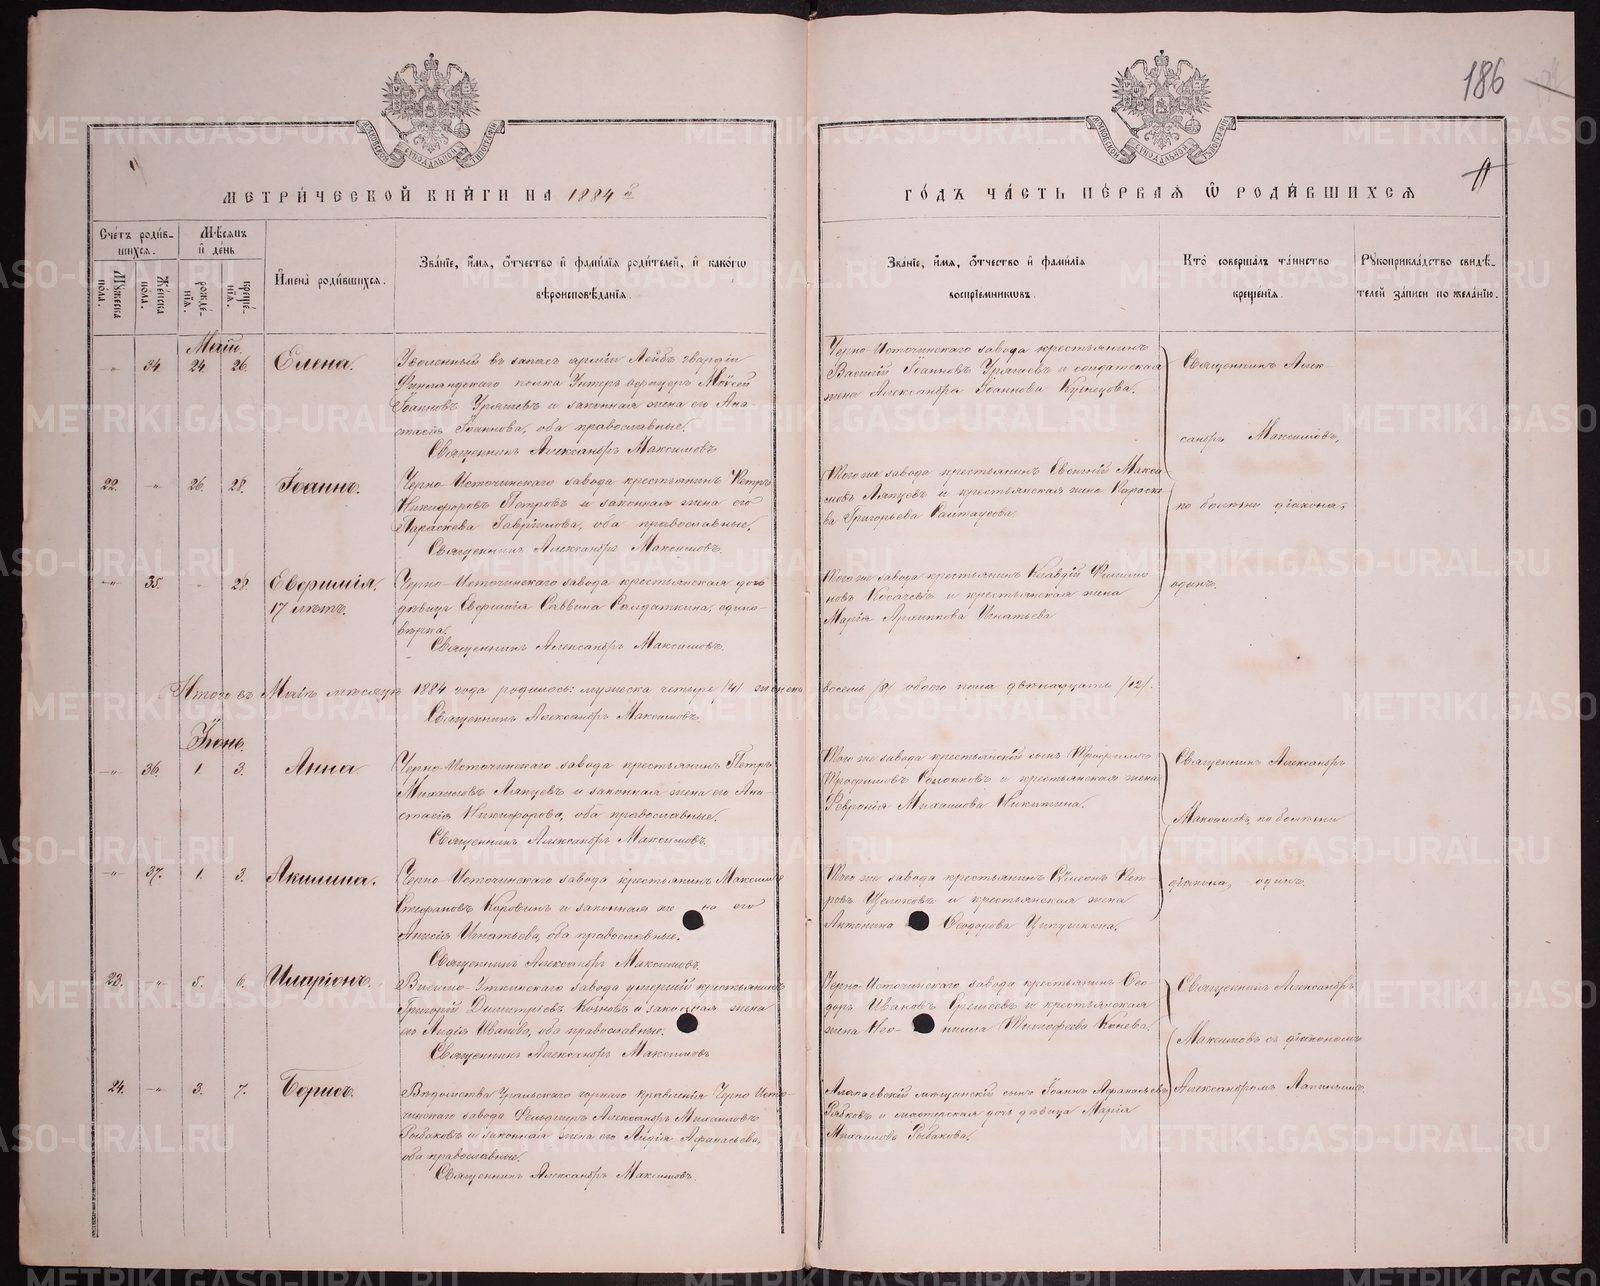 186
МЕТРИ́ЧЕСКОЙ КНИ́ГИ НА 1884 й
ГО́ДЪ ЧА́СТЬ ПЕ́РВАЯ Ѿ РОДИ́ВШИХСЯ
Сче́тъ роди́в-
шихся.
Му́жеска по́ла.
Же́нска по́ла.
Мѣ́сяцъ и де́нь
рожде́-
нія.
креще́-
нія.
Имена̀ роди́вшихся.
Зва́ніе, и́мя, о́тчество и фами́лія роди́телей, и како́гѡ
вѣроисповѣ́данія.
Зва́ніе, и́мя, о́тчество и фами́лія
воспріе́мниковъ.
Кто̀ соверша́лъ та́инство
креще́нія.
Рукоприкла́дство свидѣ́-
телей за́писи по жела́нію.
Май.
-"- 34 24. 26. Елена.
Уволенный въ запасъ арміи Лейбъ гвардіи
Финляндскаго полка Унтеръ офицеръ Моѵсей
Іоанновъ Уряшевъ и законная жена его Ана-
стасія Іоаннова, оба православные.
Священникъ Александръ Максимовъ
Черно-Источинскаго завода крестьянинъ
Василій Іоанновъ Уряшевъ и солдатская
жена Александра Іоаннова Кузнецова.
Священникъ Алек-
сандръ Максимовъ,
по болѣзни діакона,
одинъ.
22. -"- 26. 28. Іоаннъ.
Черно-Источинскаго завода крестьянинъ Петръ
Никифоровъ Петровъ и законная жена его
Параскева Гавріилова, оба православные.
Священникъ Александръ Максимовъ.
Того же завода крестьянинъ Евсигній Макси-
мовъ Ляпцевъ и крестьянская жена
Григорьева
-"- 35. - 28. Евфимія.
17 лѣтъ.
Черно-Источинскаго завода крестьянская дочь
дѣвица Евфимія Саввина Солдаткина, едино-
вѣрка.
Священникъ Александръ Максимовъ.
Того же завода крестьянинъ Клавдій Филимо-
новъ Косачевъ и крестьянская жена
Марія Архиппова Игнатьева
Итого въ Маѣ мѣсяцѣ 1884 года родилось: мужеска четыре /4/ женска восемь /8/ обоего пола двѣнадцать /12/.
Священникъ Александръ Максимовъ
Іюнь.
-"- 36. 1. 3. Анна
Черно-Источинскаго завода крестьянинъ Петръ
Михаиловъ Ляпцевъ и законная жена его Ана-
стасія Никифорова, оба православные.
Священникъ Александръ Максимовъ.
Того же завода крестьянскій сынъ Трофимъ
Трофимовъ и крестьянская жена
Февронія Михаилова Никитина.
Священникъ Александръ
Максимовъ, по болѣзни
діакона, одинъ.
-"- 37. 1. 3. Акилина.
Черно-Источинскаго завода крестьянинъ Максимъ
Стефановъ Коровинъ и законная же на его
Анисія Игнатьева, оба православные.
Священникъ Александръ Максимовъ.
Того же завода крестьянинъ Сѵмеонъ Пет-
ровъ Щелоковъ и крестьянская жена
Антонина Ѳеодорова Ципушкина.
23. -"- 5. 6. Иларіонъ.
Висимо-Уткинскаго завода умершій крестьянинъ
Григорій Димитріевъ и законная жена
его Лидія Иванова, оба православные.
Священникъ Александръ Максимовъ
Черно-Источинскаго завода крестьянинъ Ѳео-
доръ Ивановъ и крестьянская
жена Тимофеева Конева.
Священникъ Александръ
Максимовъ съ діакономъ
Александромъ
24. -"- 3. 7. Борисъ.
Вѣдомства Уральскаго горнаго правленія Черно Исто-
чинскаго завода Фельдшеръ Александръ Михаиловъ
Рыбаковъ и законная жена его Лидія Афанасьева,
оба православные.
Священникъ Александръ Максимовъ.
Алапаевскій мѣщанскій сынъ Іоаннъ Афанасьевъ
Рябковъ и мастерская дочь дѣвица Марія
Михаилова Рыбакова.
METRIKI.GASO-URAL.RU